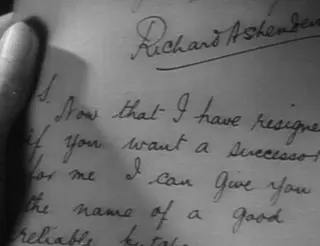 Richard Ashenden
S. Now that I have resigne
if you want a successor
for me I can give you
the name of a good
reliable